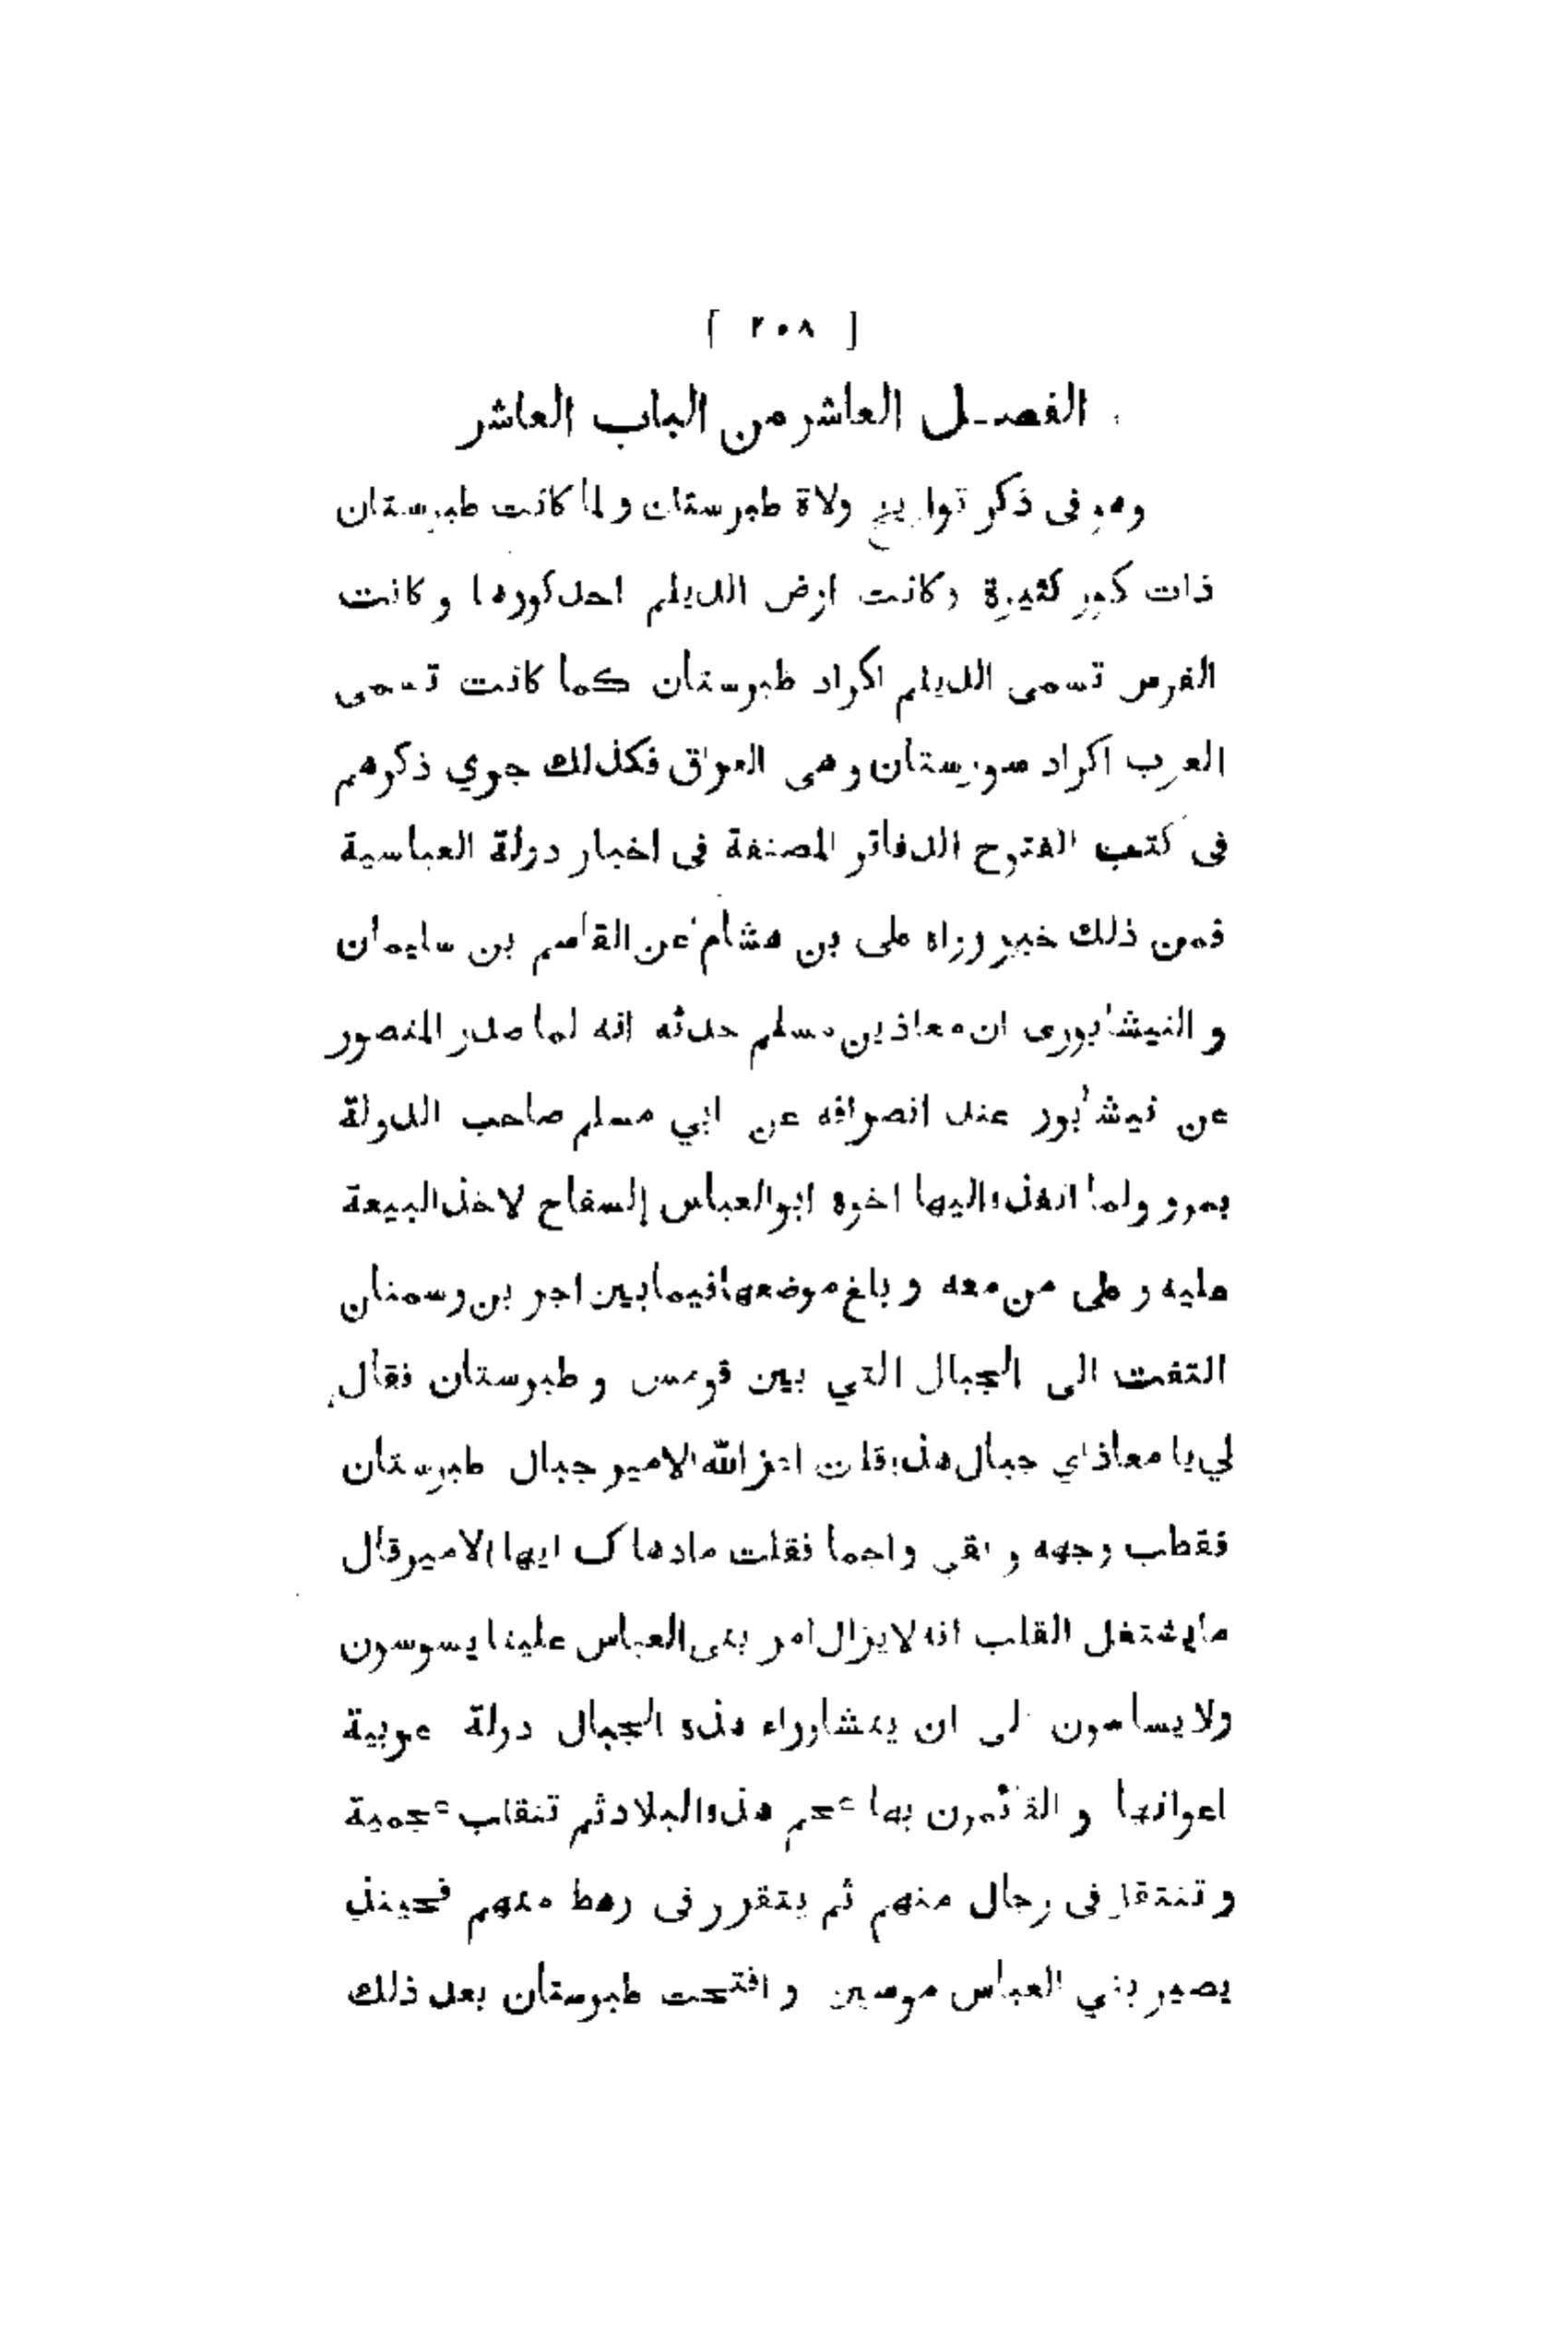 [ ٢٠٨ ]
الفصل العاشر من الباب العاشر
وهو فى ذكر تواريخ ولاة طبرستان ولما كانت طبرستان
ذات كور كثيرة وكانت ارض الديلم احد كورها وكانت
الفرس تسمى الديلم اكراد طبرستان كما كانت تسمى
العرب اكراد سورستان وهى العراق فكذلك جري ذكرهم
فى كتب الفتوح الدفاتر المصنفة فى اخبار دولة العباسية
فمن ذلك خبر رواه على بن هشام عن القاسم بن سليمان
و النيشابورى ان معاذ بن مسلم حدثه انه لما صدر المنصور
عن نيشابور عند انصرافه عن ابي مسلم صاحب الدولة
بمرو ولما انفذه اليها اخوه ابو العباس السفاح لاخذ البيعة
عليه و على من معه و بلغ موضعها فيما بين اجر بن وسمنان
التفت الى الجبال التي بين قومس و طبرستان فقال
لي يا معاذ اي جبال هذه قلت اعز الله الامير جبال طبرستان
فقطب وجهه و بقى واجما فقلت مادهاك ايها الامير قال
ما يشتغل القلب انه لايزال امر بنى العباس علينا يسوسون
ولا يسامون لى ان ينشا وراء هذه الجبال دولة عربية
اعوانها و القائمون بها عجم هذه البلاد ثم تنقلب عجمية
و تنتقل فى رجال منهم ثم يتقرر فى رهط منهم فحينئذ
يصير بني العباس موسين و افتتحت طبرستان بعد ذلك